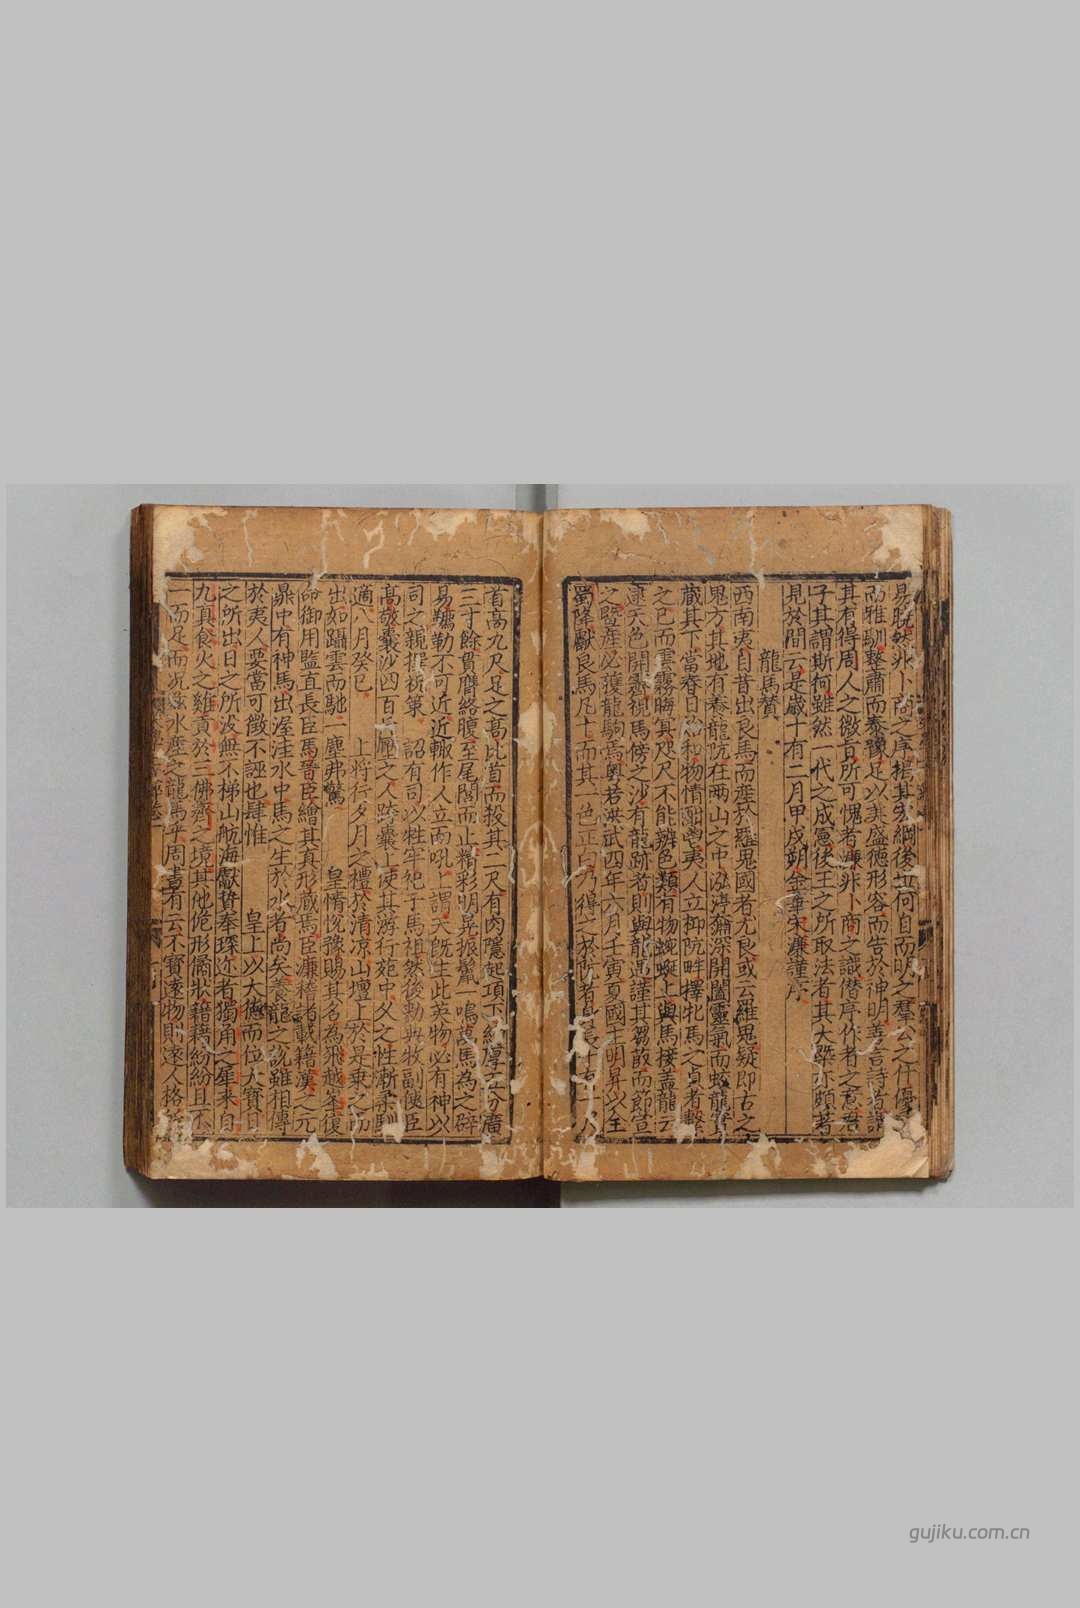 易脫然非卜商之序揭其宏綱後世何自而明之羣公之什優柔
而雅馴整肅而泰豫足以美盛德形容而告於神明善言詩者謂
其有得周人之微旨所可愧者濂非卜商之識僭序作者之意君
子其謂斯何雖然一代之成憲後王之所取法者其大槩亦頗著
見於間云是歲十有二月甲戍朔金華宋濂謹序
龍馬贊
西南夷自昔出良馬而產於羅鬼國者尤良或云羅鬼疑即古之
鬼方其地有養龍阬在兩山之中泓渟瀜深開闔靈氣而蛟龍實
藏其下當春日始和物情酣鬯夷人立柳阬畔擇牝馬之貞者繫
之已而雲霧晦冥咫尺不能辨色類有物蜿蜒上與馬接蓋龍云
逮天色開霽視馬傍之沙有龍跡者則與龍遇謹其芻菽而節宣
之暨產必獲龍駒焉粵若洪武四年六月壬寅夏國主明昇以全
蜀降獻良馬凡十而其一色正白乃得之於阬者身長十有一尺
首高九尺足之高比首而投其二尺有肉隱起項下約厚五分廣
三寸餘貫膺絡腹至尾閭而止精彩明晃振鬣一鳴萬馬為之辟
易鞿勒不可近近輙作人立而吼上謂天旣生此英物必有神以
司之親撰祝策 詔有司以牲牢祀于馬祖然後勑典牧副使臣
高敬囊沙四百斤壓之人跨囊上使其游行苑中久之性漸柔馴
適八月癸巳 上將行夕月之禮於清凉山壇上於是乘之而
出如躡雲而馳一塵弗驚 皇情悅豫賜其名為飛越峯復
命御用監直長臣馬晉臣繪其真形藏焉臣濂稽諸載籍漢之元
鼎中有神馬出渥洼水中馬之生於水者尚矣養龍之說雖相傳
於夷人要當可徵不誣也肆惟 皇上以大德而位大寶日
之所出日之所沒無不梯山航海獻贄奉琛近者獨角之犀來自
九真食火之雞貢於三佛齊之境其他佹形僪狀籍籍紛紛且不
一而足而況水產之龍馬乎周書有云不寶遠物則遠人格
gujiku.com.cn